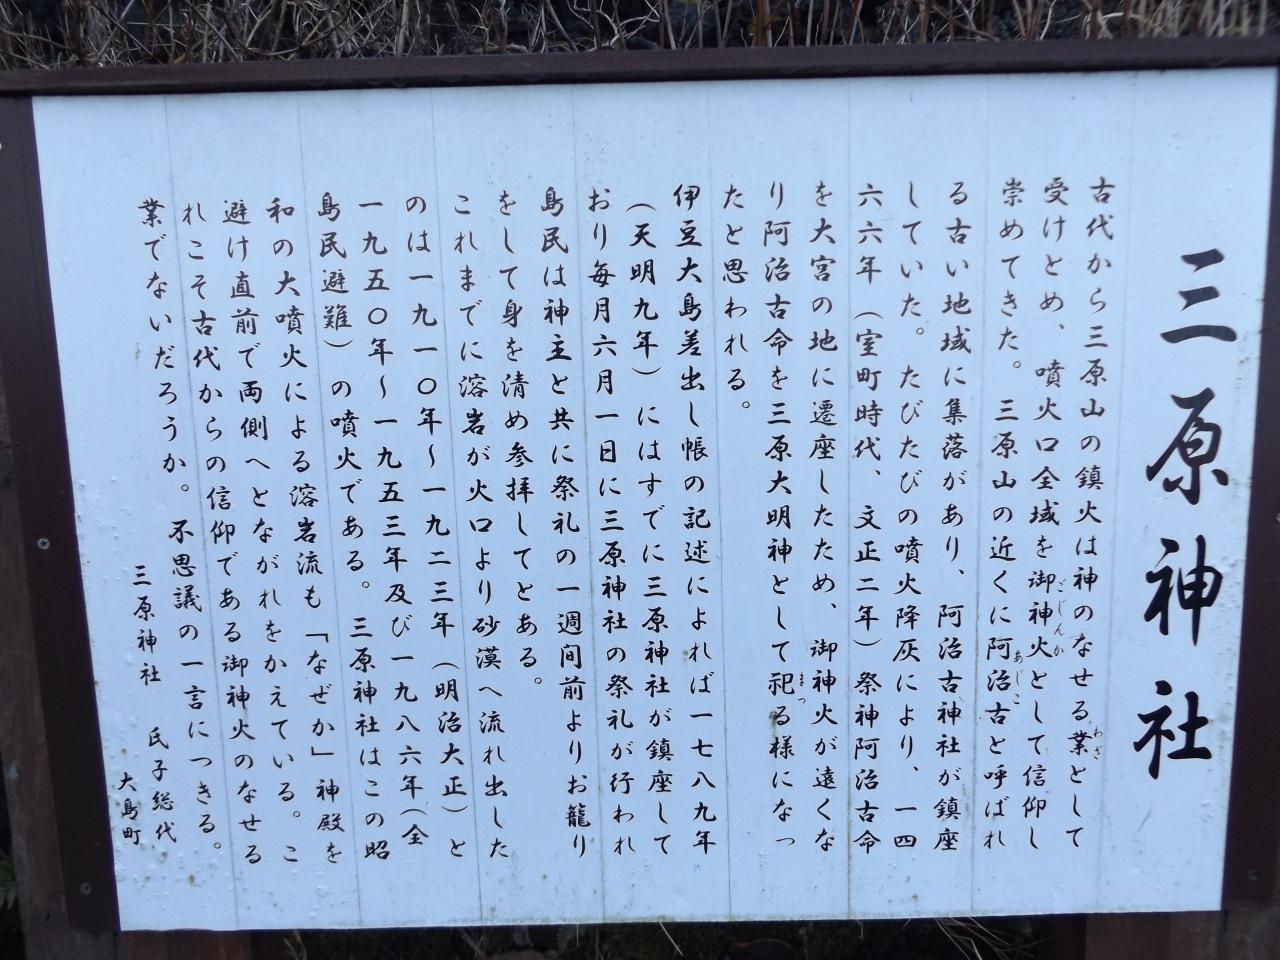 三原神社
古代から三原山の鎮火は神のなせる業として
わざ
受けとめ、噴火口全域を御神火として信仰し
ごじんか
崇めてきた。三原山の近くに阿治古と呼ばれ
あじこ
る古い地域に集落があり、阿治古神社が鎮座
していた。たびたびの噴火降灰により、一四
六六年（室町時代、文正二年）祭神阿治古命
を大宮の地に遷座したため、御神火が遠くな
り阿治古命を三原大明神として祀る様になっ
まつ
たと思われる。
伊豆大島差出し帳の記述によれば一七八九年
（天明九年）にはすでに三原神社が鎮座して
おり毎月六月一日に三原神社の祭礼が行われ
島民は神主と共に祭礼の一週間前よりお籠り
をして身を清め参拝してとある。
これまでに溶岩が火口より砂漠へ流れ出した
のは一九一〇年～一九二三年（明治大正）と
一九五〇年～一九五三年及び一九八六年（全
島民避難）の噴火である。三原神社はこの昭
和の大噴火による溶岩流も「なぜか」神殿を
避け直前で両側へとながれをかえている。こ
れこそ古代からの信仰である御神火のなせる
業でないだろうか。不思議の一言につきる。
三原神社　氏子総代
大島町